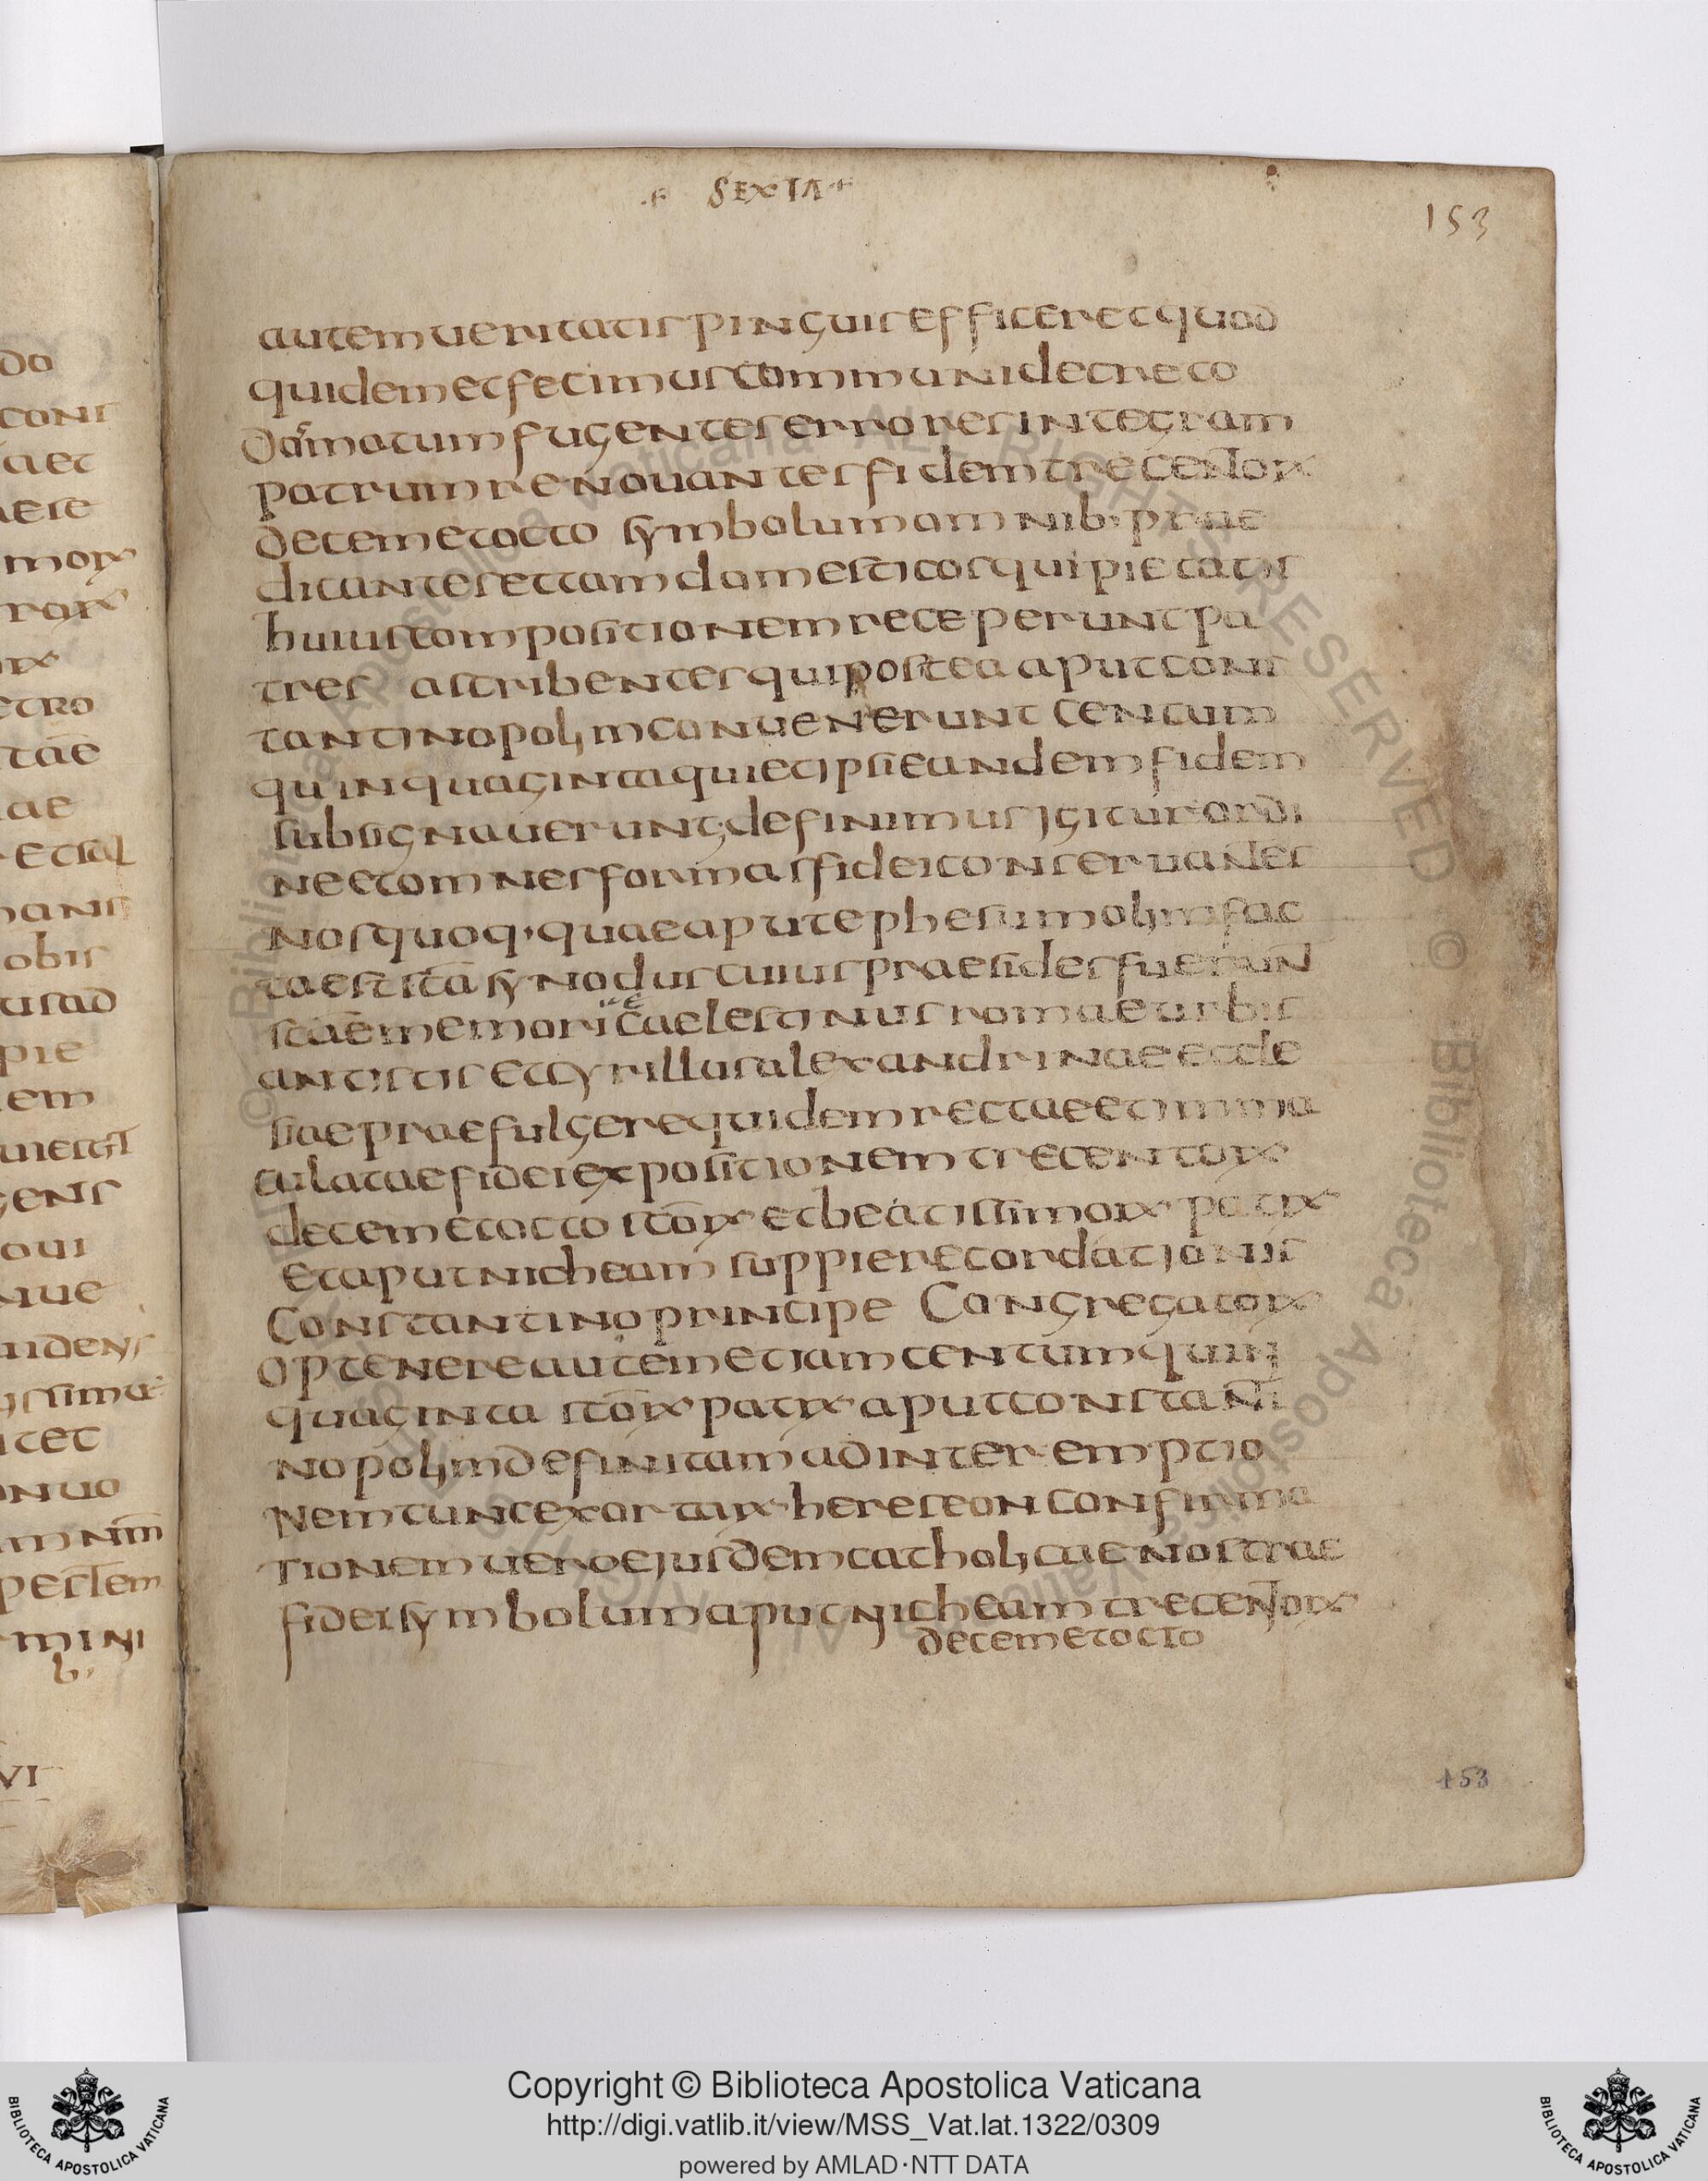 SEXTA
153
autem ueritatis pinguis efficeret quod
quidem et fecimus communi decreto
domatum fugentes errores integram
patrum renouantes fidem trecentorum
decem et octo symbolum omnib· prae
dicantes et tam domesticos qui pietatis
huius compositionem receperunt pa
tres ascribentes qui postea aput cons
tantinopolim conuenerunt centum
quinquaginta qui et ipsi eandem fidem
subsignauerunt· definimus igitur ordi
ne et omnes formas fidei conseruantes
nos quoq· quae aput ephesum olim fac
ta est sc̄a synodus cuius praesides fuerunt
sc̄ae memoriae caelestinus romae urbis
antistis et cyrillus alexandrinae eccle
siae praefulgere quidem rectae et imma
culatae fidei expositionem trecentorum
decem et octo sc̄orum et beatissimorum patrum
et aput nicheam sup pie recordationis
Constantino principe Congregatorum
optenere autem etiam centum quin
quaginta sc̄orum patrum aput constanti
nopolim definitam ad interemptio
nem tunc exortarum hereseon confirma
tionem uero eiusdem catholicae nostrae
fidei symbolum aput nicheam trecentorum
decem et octo
153
Copyright © Biblioteca Apostolica Vaticana
http://digi.vatlib.it/view/MSS_Vat.lat.1322/0309
powered by AMLAD·NTT DATA